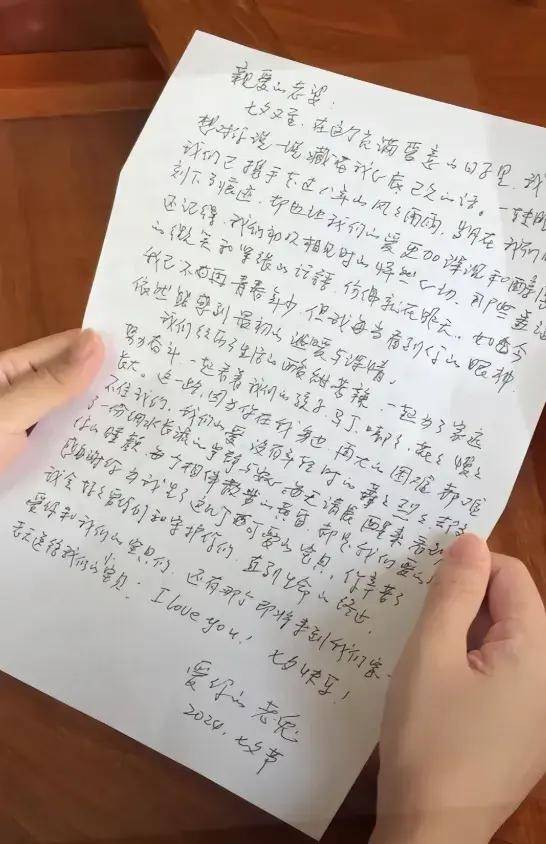 亲爱的老婆：
七夕又至，在这个充满爱意的日子里，我
想对你说一说藏在我心底已久的话。一转眼
我们已携手走过八年的风风雨雨，岁月在我们的
刻下了痕迹，却也让我们的爱更加深沉和醇
还记得，我们初次相见时的怦然心动，那些羞涩
的微笑和紧张的话语，仿佛就在昨天。如今
我已不再青春年少，但我每当看到你的眼神，
依然能感到最初的温暖与深情。
我们经历了生活的酸甜苦辣，一起为了家庭
努力奋斗，一起看着我们的孩子，慢慢
长大。这一路，因为你在我身边，再大的困难都难
不住我们。我们的爱没有年轻时的轰轰烈烈，却多
了一份细水长流的
你的睡颜，每个相伴散步的黄昏，都是我们爱的
感谢你为我生了这几个可爱的宝贝，你辛苦了
我会好好爱你们和守护你们，直到生命的终点。
爱你和我们的宝贝们，还有那个即将来到我们家
我们的小宝贝。I love you！七夕快乐！
爱你的老
2024.七夕节